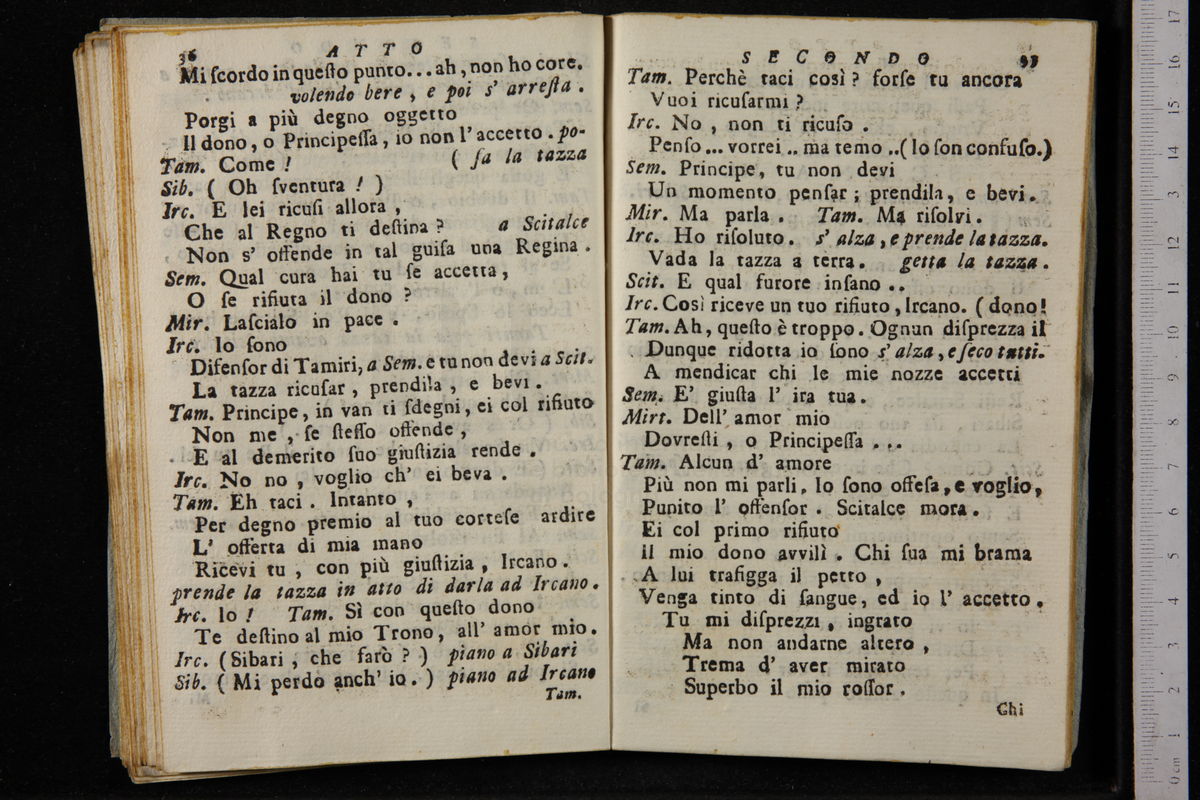 36
ATTO
Mi ſcordo in queſto punto... ah, non ho core.
volendo bere, e poi s' arreſta.
Porgi a più degno oggetto
Il dono, o Principeſſa, io non l' accetto. po-
Tam. Come! ( ſa la tazza
Sib. ( Oh ſventura! )
Irc. E lei ricuſi allora,
Che al Regno ti deſtina? a Scitalce
Non s' offende in tal guiſa una Regina.
Sem. Qual cura hai tu ſe accetta,
O ſe rifiuta il dono?
Mir. Laſcialo in pace.
Irc. Io ſono
Difenſor di Tamiri, a Sem. e tu non devi a Scit.
La tazza ricuſar, prendila, e bevi.
Tam. Principe, in van ti ſdegni, ei col rifiuto
Non me, ſe ſteſſo offende,
E al demerito ſuo giuſtizia rende.
Irc. No no, voglio ch' ei beva.
Tam. Eh taci. Intanto,
Per degno premio al tuo corteſe ardire
L' offerta di mia mano
Ricevi tu, con più giuſtizia, Ircano.
prende la tazza in atto di darla ad Ircano.
Irc. Io! Tam. Sì con queſto dono
Te deſtino al mio Trono, all' amor mio.
Irc. (Sibari, che farò?) piano a Sibari
Sib. (Mi perdo anch' io.) piano ad Ircano
Tam.
SECONDO
37
Tam. Perchè taci così? forſe tu ancora
Vuoi ricuſarmi?
Irc. No, non ti ricuſo.
Penſo... vorrei.. ma temo..(Io ſon confuſo.)
Sem. Principe, tu non devi
Un momento penſar; prendila, e bevi.
Mir. Ma parla. Tam. Ma riſolvi.
Irc. Ho riſoluto. s' alza, e prende la tazza.
Vada la tazza a terra. getta la tazza.
Scit. E qual furore inſano..
Irc. Così riceve un tuo rifiuto, Ircano. (dono!
Tam. Ah, queſto è troppo. Ognun diſprezza il
Dunque ridotta io ſono s' alza, e ſeco tutti.
A mendicar chi le mie nozze accetti
Sem. E' giuſta l' ira tua.
Mirt. Dell' amor mio
Dovreſti, o Principeſſa...
Tam. Alcun d' amore
Più non mi parli. Io ſono offeſa, e voglio,
Punito l' offenſor. Scitalce mora.
Ei col primo rifiuto
Il mio dono avvilì. Chi ſua mi brama
A lui trafigga il petto,
Venga tinto di ſangue, ed io l' accetto.
Tu mi diſprezzi, ingrato
Ma non andarne altero,
Trema d' aver mirato
Superbo il mio roſſor.
Chi
0 cm 1 2 3 4 5 6 7 8 9 10 11 12 13 14 15 16 17